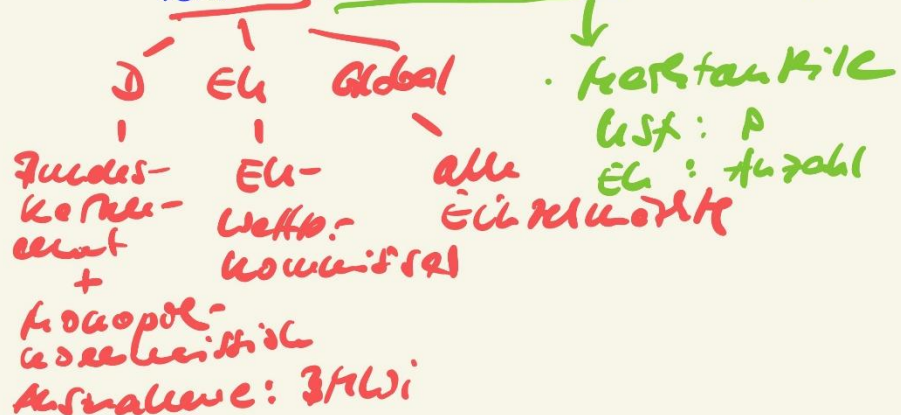 D EU Global
Bundes-
kartell-
amt
+
Monopol-
kommission
Ausnahme: BMWi
EU-
Wettb.-
kommissar
alle
Einzelmärkte
· Marktanteile
USA:
EU: Anzahl